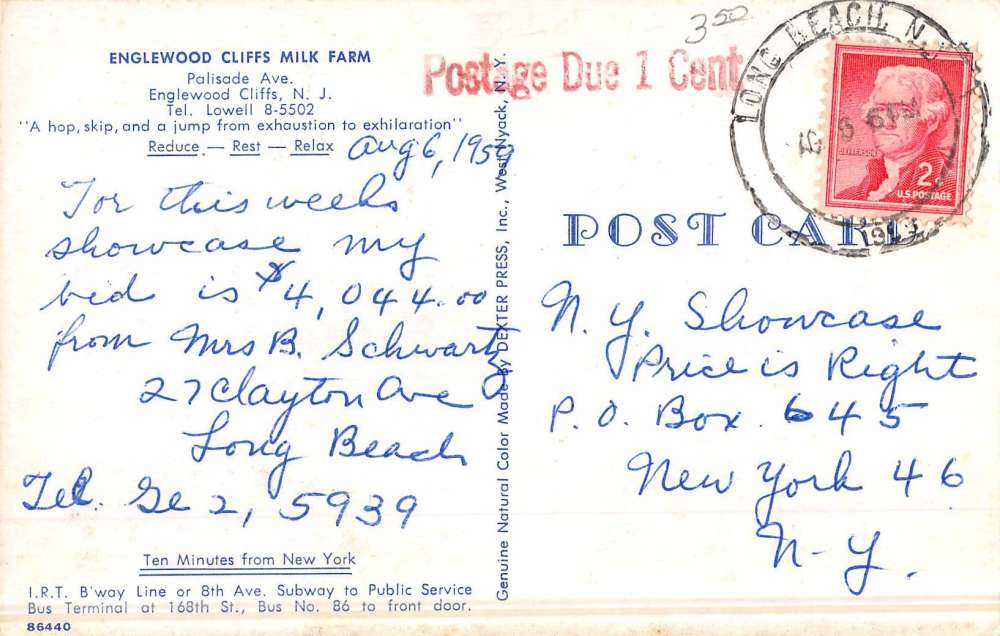 ENGLEWOOD CLIFFS MILK FARM
Palisade Ave.
Englewood Cliffs, N. J.
Tel. Lowell 8-5502
"A hop, skip, and a jump from exhaustion to exhilaration"
Reduce — Rest — Relax
Aug 6, 1959
For this weeks
showcase my
bid is $4,044.00
from Mrs B. Schwartz
27 Clayton Ave
Long Beach
Tel. Ge 2, 5939
Ten Minutes from New York
I.R.T. B'way Line or 8th Ave. Subway to Public Service
Bus Terminal at 168th St., Bus No. 86 to front door.
86440
Genuine Natural Color Made By DEXTER PRESS, Inc., West Nyack, N. Y.
350
Postage Due 1 Cent
LONG BEACH, N.Y.
6 PM
JEFFERSON
2¢
U.S. POSTAGE
POST CARD
N. Y. Showcase
Price is Right
P. O. Box 645
New York 46
N-Y.